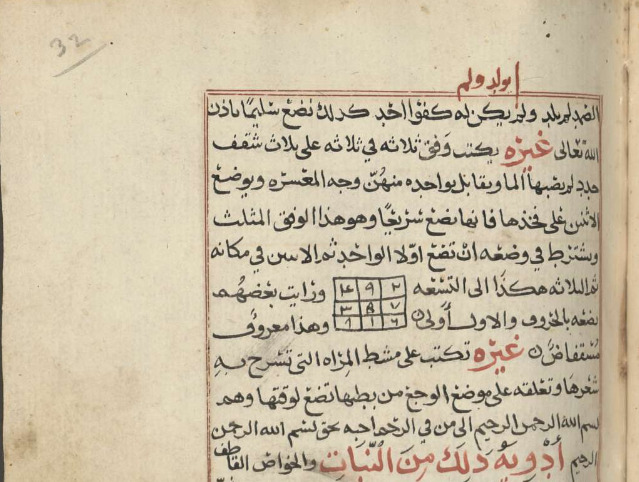 32
يولد ولم
الصمد لم يلد ولم يكن له كفوا احد كذلك تضع سليما باذن
الله تعالى غيره يكتب وفق ثلاثه في ثلاثه على ثلاث شقف
جدد لم يصبها الما ويقابل بواحده منهن وجه المعسره ويوضع
الاثنين على فخذها فانها تضع سريعا وهو هذا الوفق المثلث
ويشترط في وضعه ان تضع اولا الواحد ثم الاثنين في مكانه
ثم الثلاثه هكذا الى التسعه ٢ ٩ ٤ ورايت بعضهم
يضعه بالحروف والاول اولى ٧ ٥ ٣ وهذا معروف
٦ ١ ٨
غيره تكتب على مشط المراه التي تسرح به
شعرها وتعلقه على موضع الوجع من بطنها تضع لوقتها وهو
بسم الله الرحمن الرحيم الى من في الرحم اجبه بحق بسم الله الرحمن
الرحيم أدوية ذلك من النبات والخواص القاطف